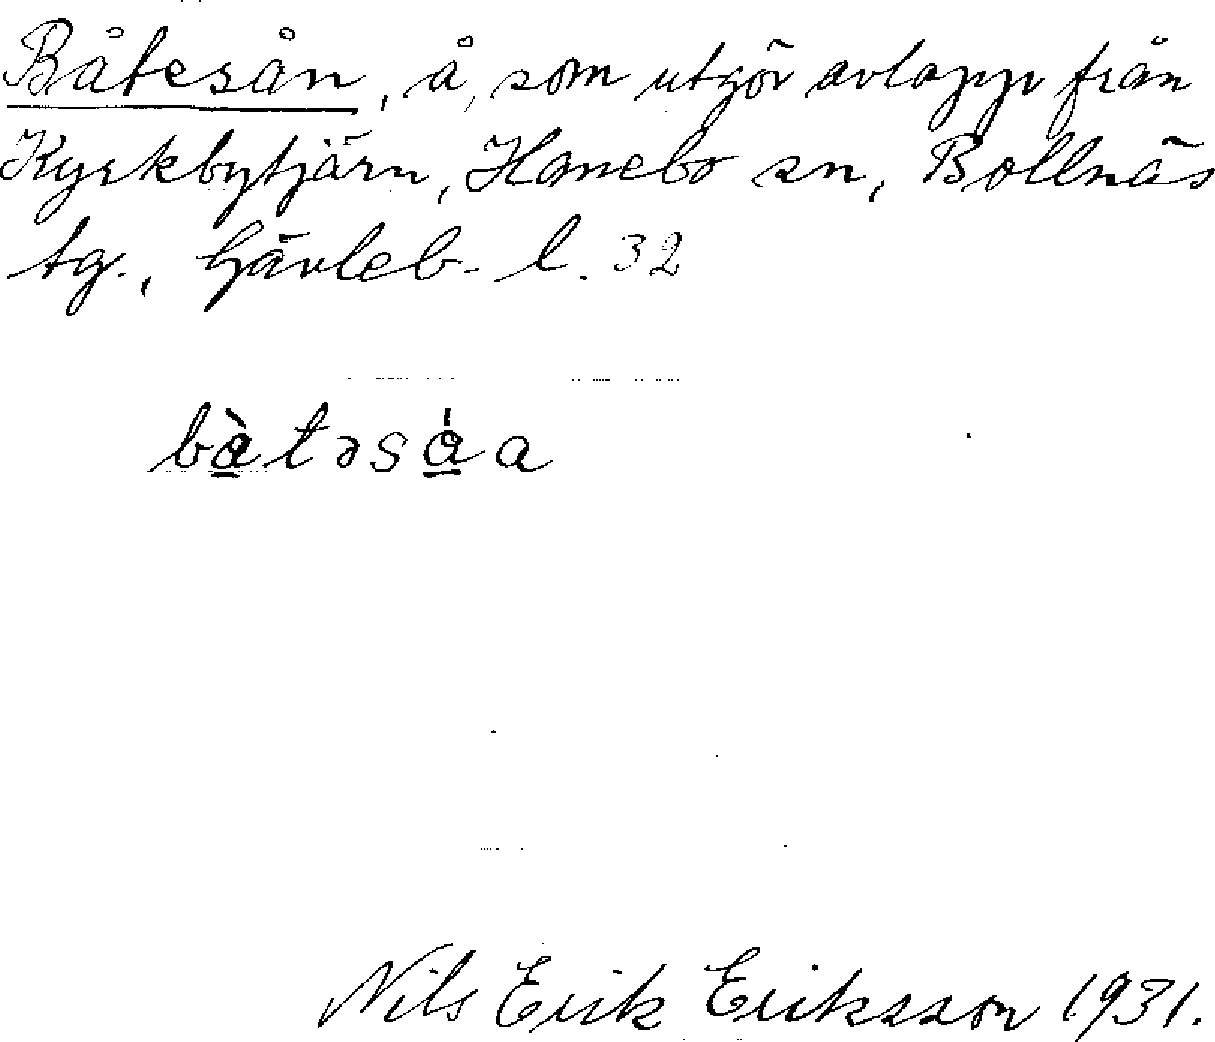 Båtesån, å, som utgör avlopp från
Kyrkbytjärn, Hanebo sn, Bollnäs
tg., Gävleb. l. 32
bàtəsáa
Nils Erik Eriksson 1931.